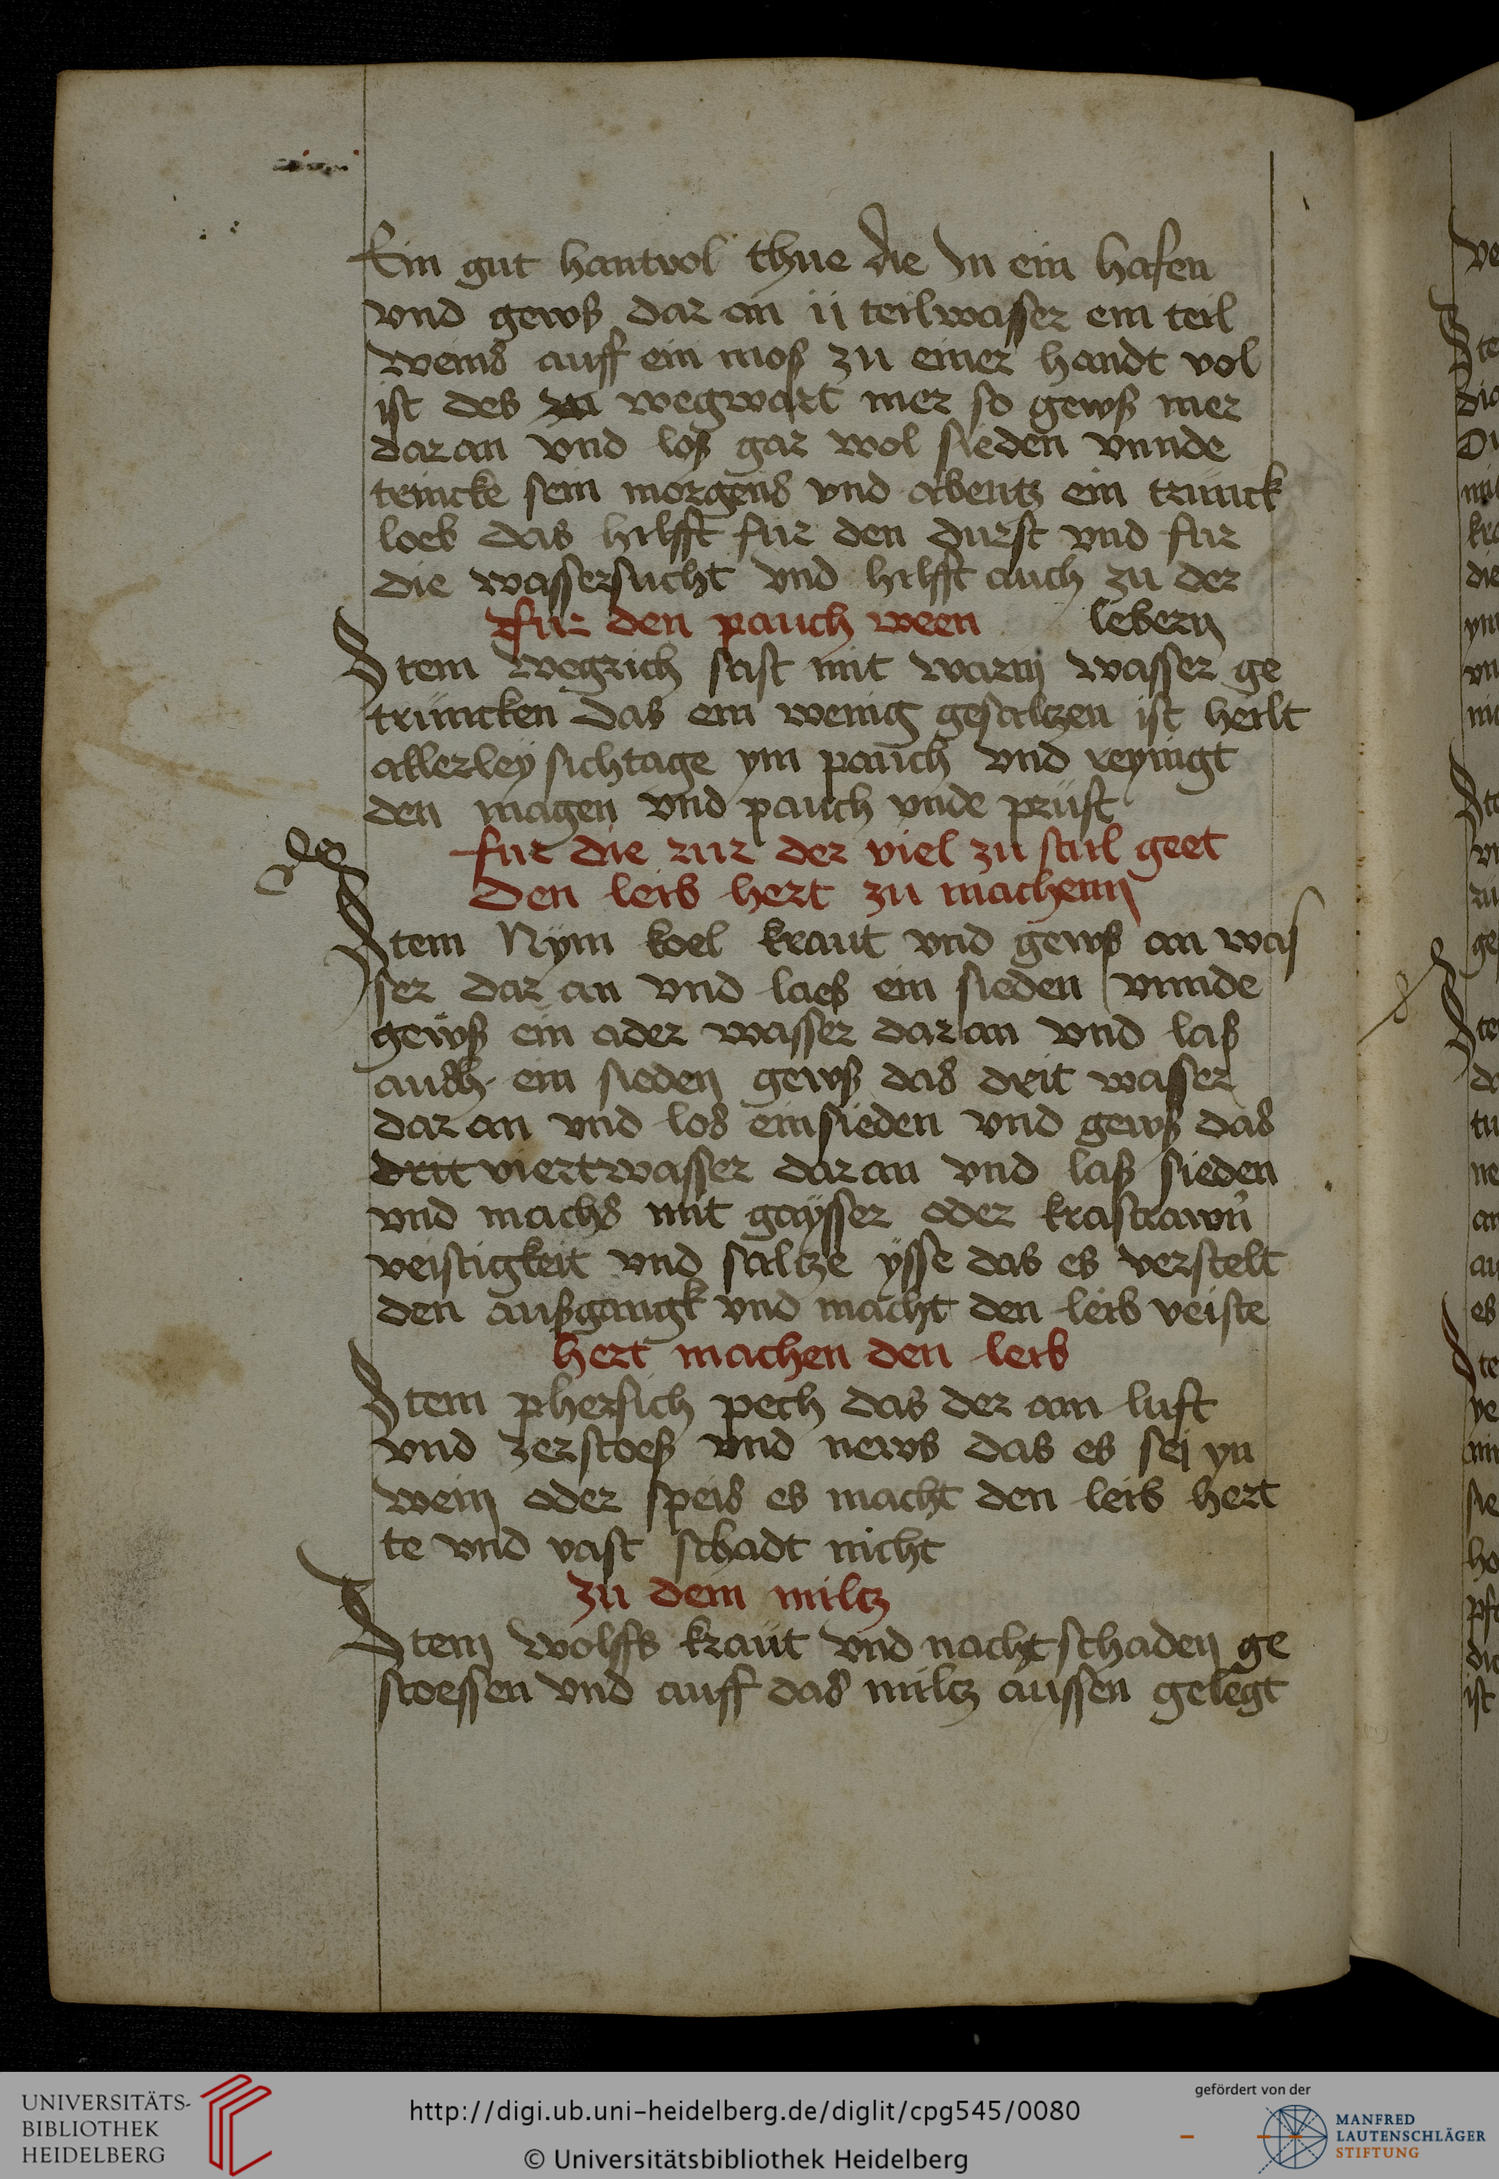 Ein gut hantvol thue die In ein hafen
vnd gewß dar an ij teil wasser ein teil
weins auff ein moß zu einer handt vol
ist des wegwart mer so gewß mer
dar an vnd loß gar wol sieden vnnde
trincke sein morgens vnd abentz ein trunck
loeb das hilfft fur den durst vnd fur
die wassersucht vnd hilfft auch zu der
lebern
Fur den pauch ween
Item wegrich safft mit warm wasser ge
truncken das ein wenig gesaltzen ist heilt
allerley sichtage ym pauch vnd reynigt
den magen vnd pauch vnde prust
fur die rur der viel zu stul geet
den leib hert zu machenn
Item Nym koel kraut vnd gewß an was
ser dar an vnd laeß ein sieden vnnde
gewß ein ader wasser dar an vnd laß
auch ein sieden gewß das drit wasser
dar an vnd los ein sieden vnd gewß das
drit viert wasser dar an vnd laß sieden
vnd machs mit gaysser oder krastrawn
veistigkeit vnd saltze ysse das es verstelt
den außgangk vnd macht den leib veiste
hert machen den leib
Item phersich pech das der am luft
vnd zerstoeß vnd news das es sej yn
wein oder speis es macht den leib hert
te vnd vast schadt nicht
zu dem miltz
Item wolffs kraut vnd nachtschaden ge
stoessen vnd auff das miltz aussen gelegt
UNIVERSITÄTS-
BIBLIOTHEK
HEIDELBERG
http://digi.ub.uni-heidelberg.de/diglit/cpg545/0080
© Universitätsbibliothek Heidelberg
gefördert von der
MANFRED
LAUTENSCHLÄGER
STIFTUNG